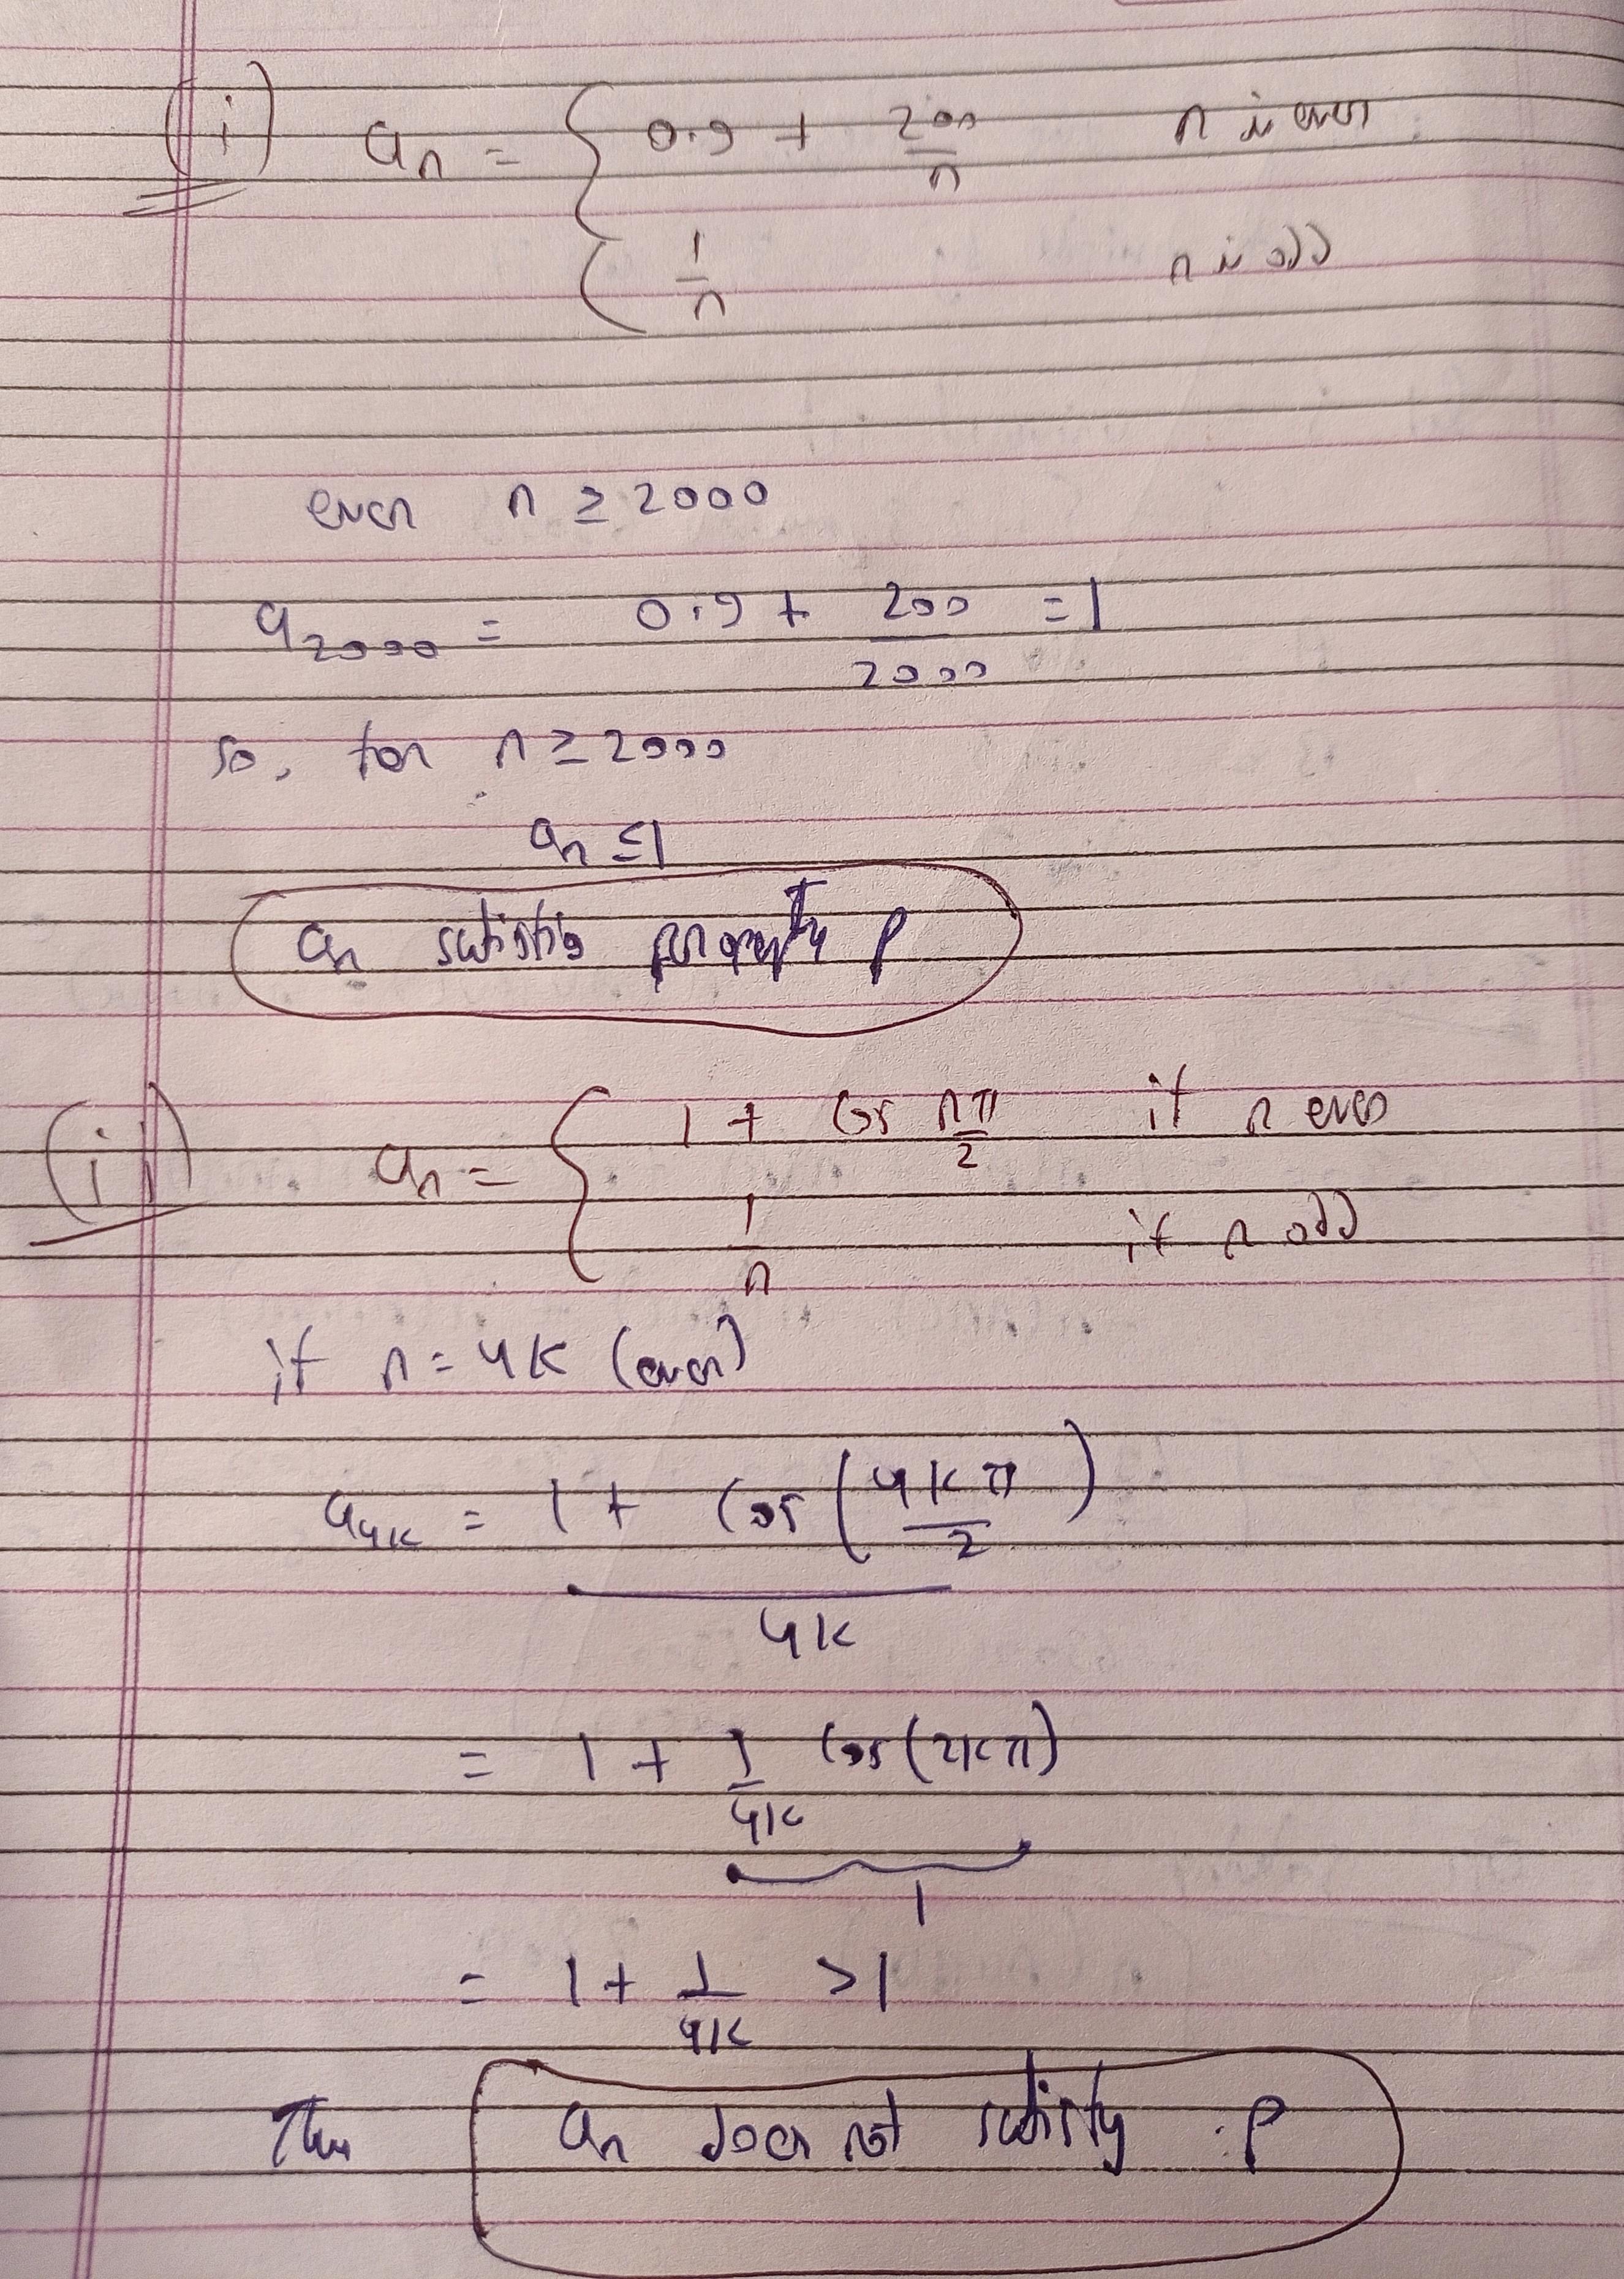 (i) aₙ = { 0.9 + 200/n n is even
1/n n is odd
even n ≥ 2000
a₂₀₀₀ = 0.9 + 200/2000 = 1
so, for n ≥ 2000
aₙ ≤ 1
aₙ satisfies property P
(ii) aₙ = { 1 + cos nπ/2 if n even
1/n if n odd
if n = 4K (even)
a₄ₖ = 1 + cos(4Kπ/2)
4K
= 1 + 1/4K cos(2Kπ)
1
= 1 + 1/4K > 1
Thus aₙ does not satisfy P